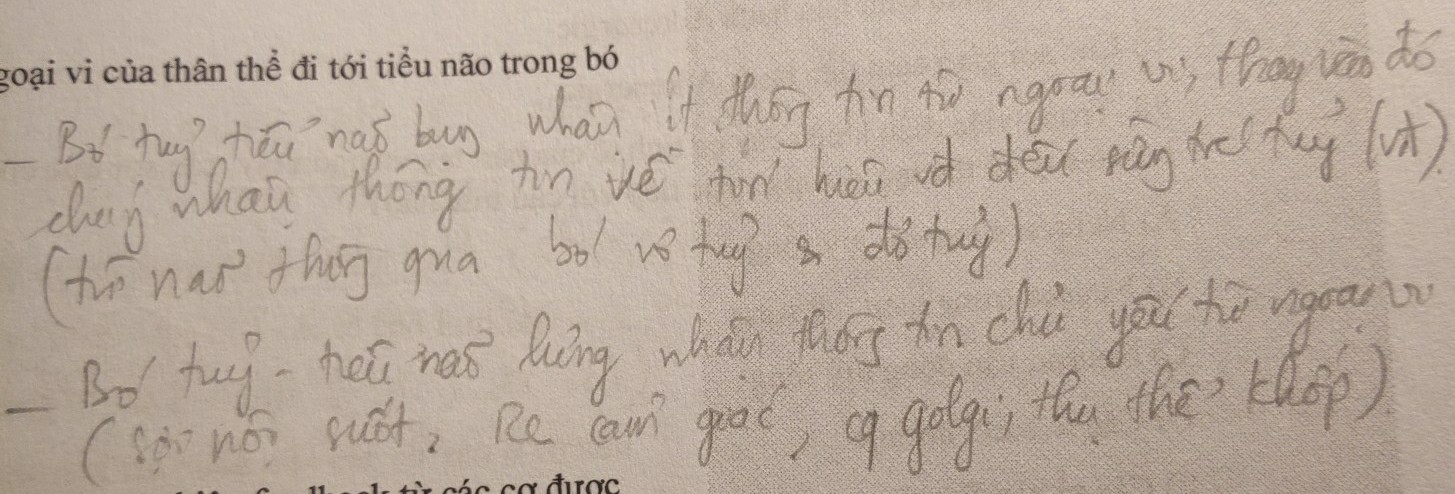 goại vi của thân thể đi tới tiểu não trong bó
– Bó tuỷ tiểu não bụng nhận ít thông tin từ ngoại vi, thay vào đó
chúng nhận thông tin về tín hiệu vđ đến sừng trc tuỷ (vđ).
(từ não thông qua bó vỏ tuỷ & đỏ tuỷ)
– Bó tuỷ - tiểu não lưng nhận thông tin chủ yếu từ ngoại vi
(sợi nội suốt, Re cảm giác, cq golgi, thụ thể khớp)
từ các cơ được